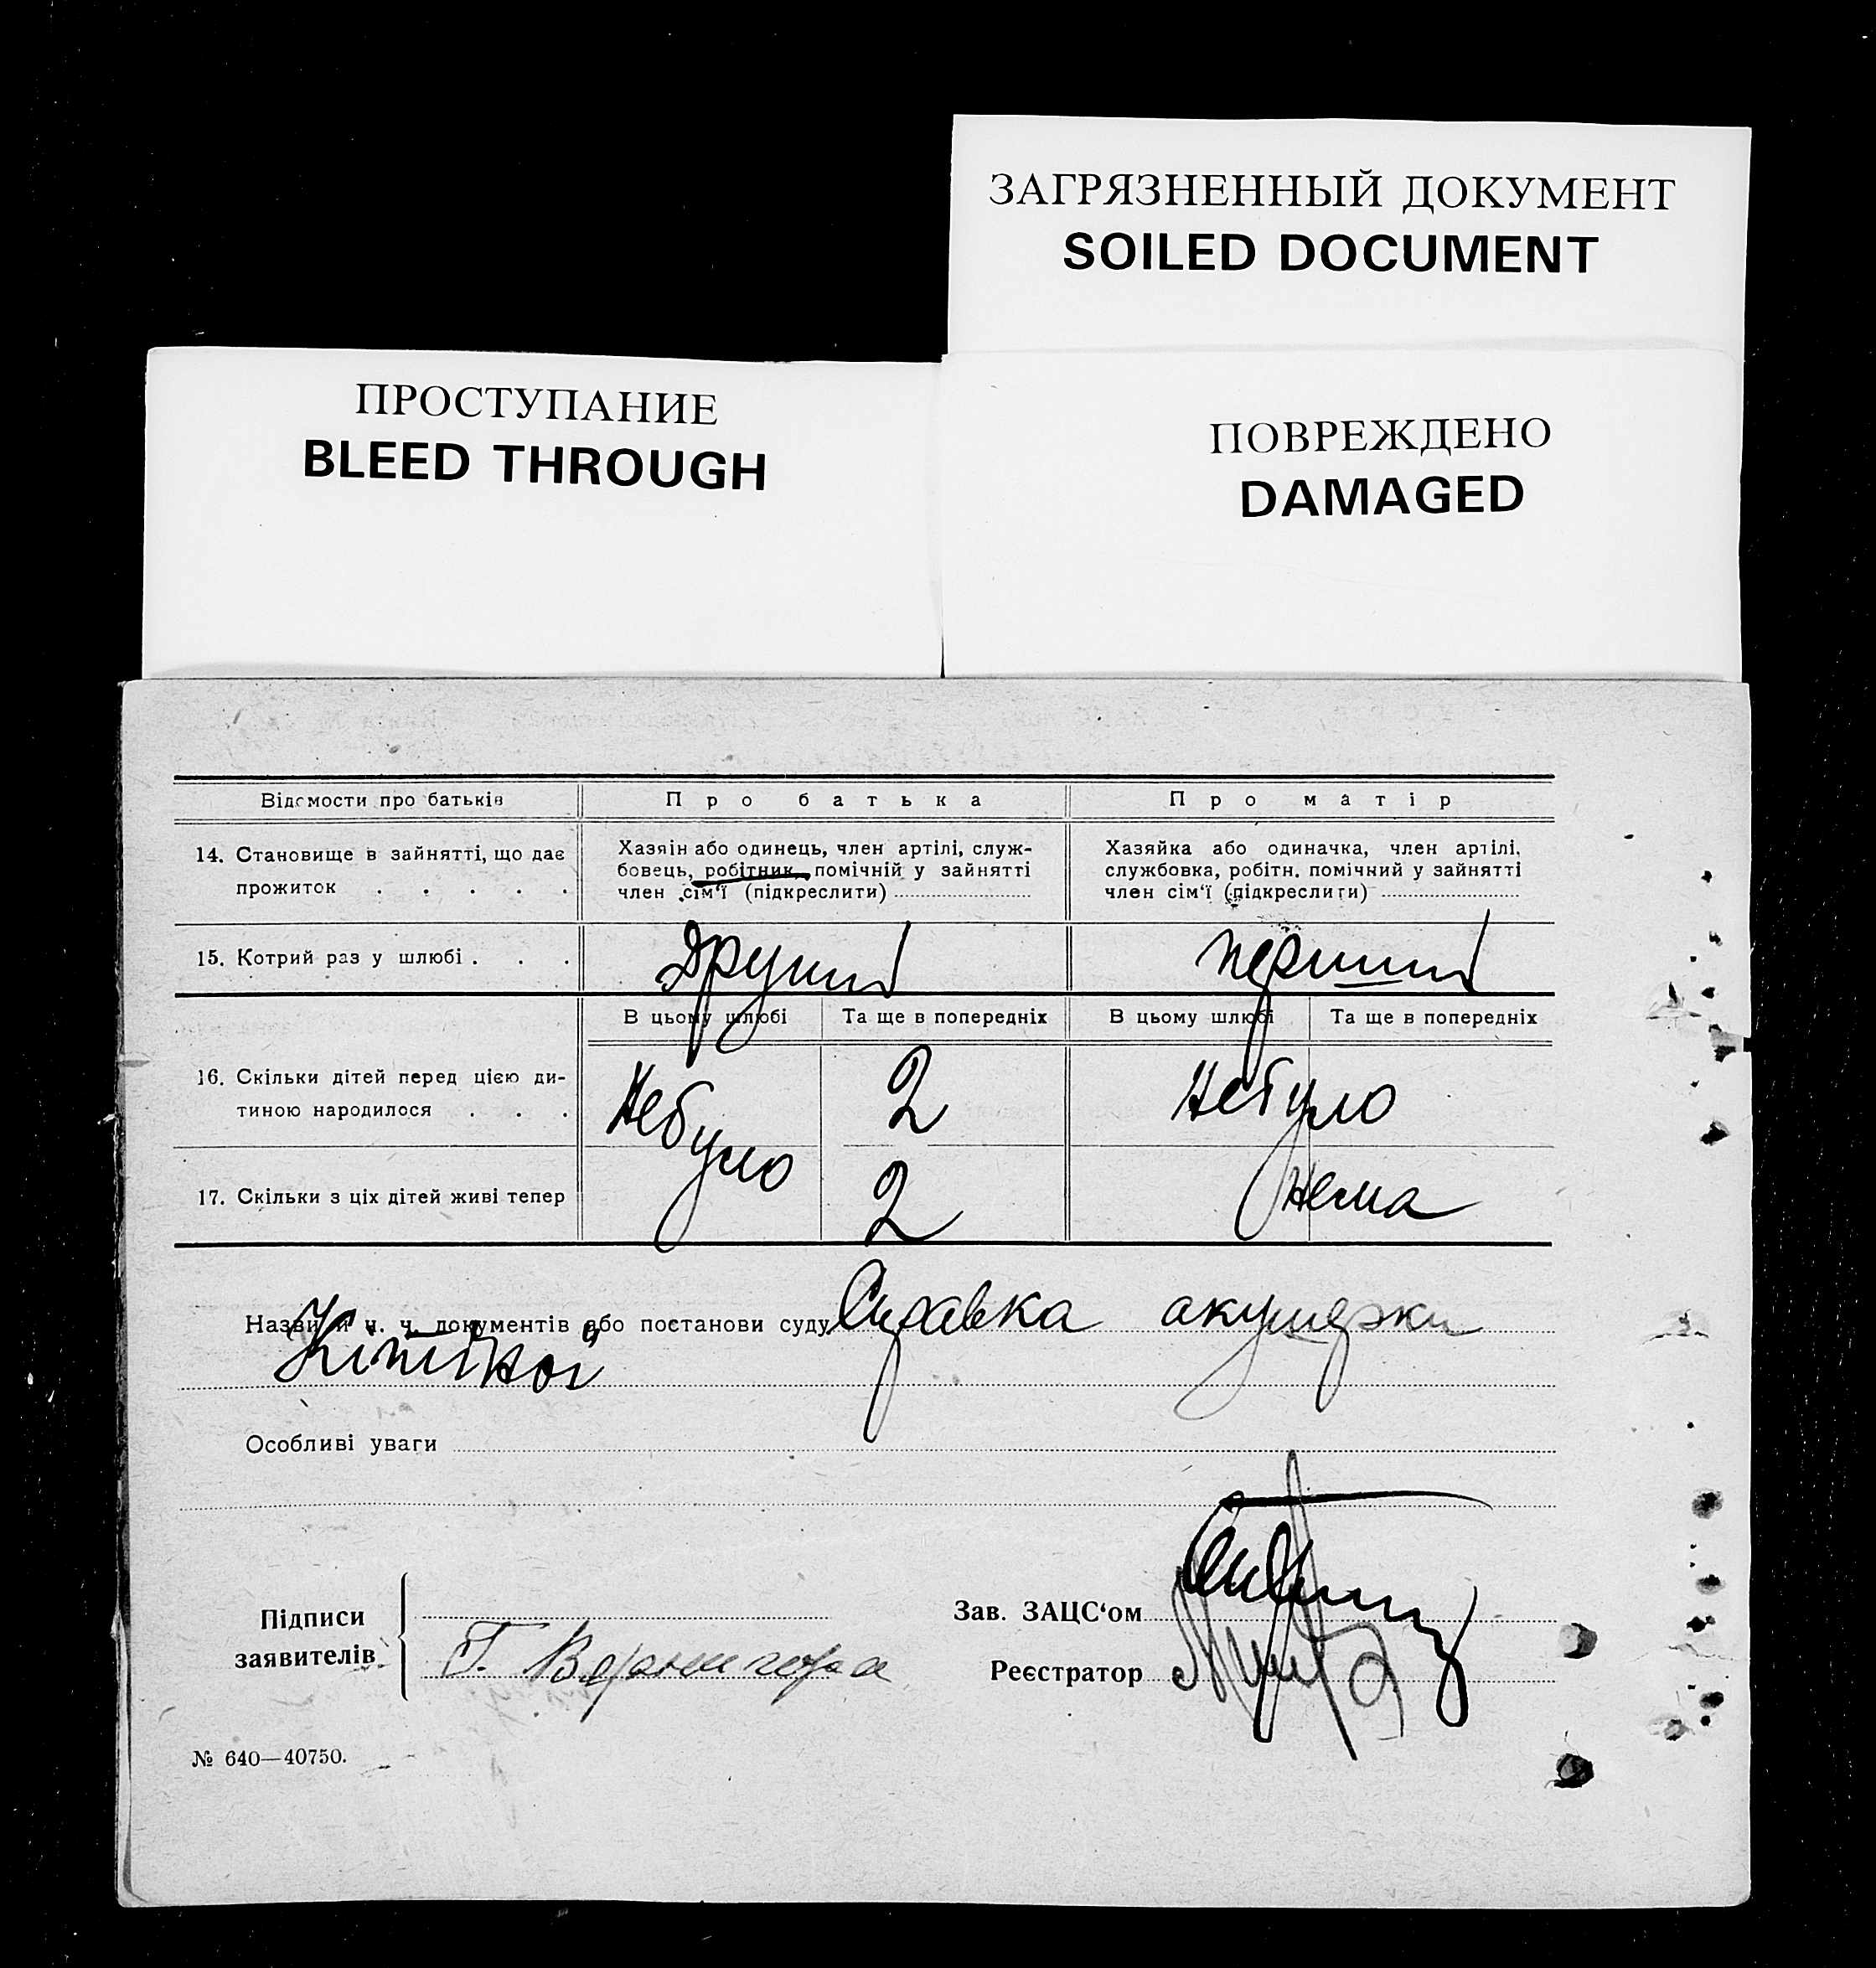 ЗАГРЯЗНЕННЫЙ ДОКУМЕНТ
SOILED DOCUMENT
ПРОСТУПАНИЕ
BLEED THROUGH
ПОВРЕЖДЕНО
DAMAGED
Відомости про батьків
Про батька
Про матір
14. Становище в зайнятті, що дає
прожиток . . . . .
Хазяін або одинець, член артілі, служ-
бовець, робітник, помічній у зайнятті
член сім'ї (підкреслити)
Хазяйка або одиначка, член артілі,
службовка, робітн. помічний у зайнятті
член сім'ї (підкреслити)
15. Котрий раз у шлюбі . . .
Другий
Перший
В цьому шлюбі
Та ще в попередніх
В цьому шлюбі
Та ще в попередніх
16. Скільки дітей перед цією ди-
тиною народилося . . .
Небуло
2
Небуло
17. Скільки з ціх дітей живі тепер
2
Нема
Назви й ч. ч. документів або постанови суду Справка акушерки
Особливі уваги
Підписи
заявителів
Г. Вернигора
Зав. ЗАЦС'ом
Реєстратор
№ 640—40750.